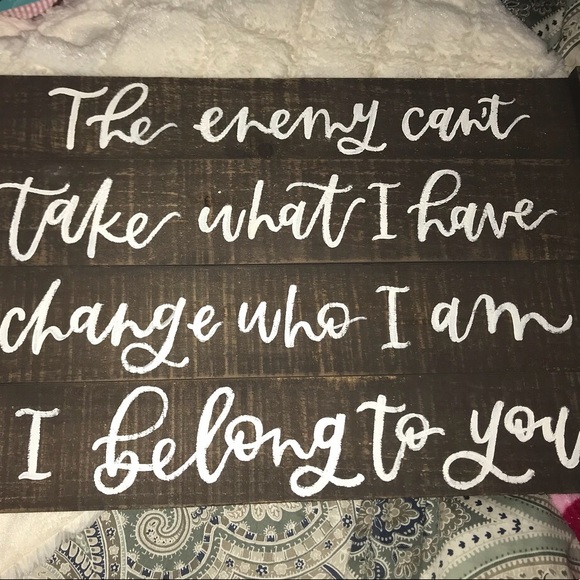 The enemy can't
take what I have
change who I am
I belong to you